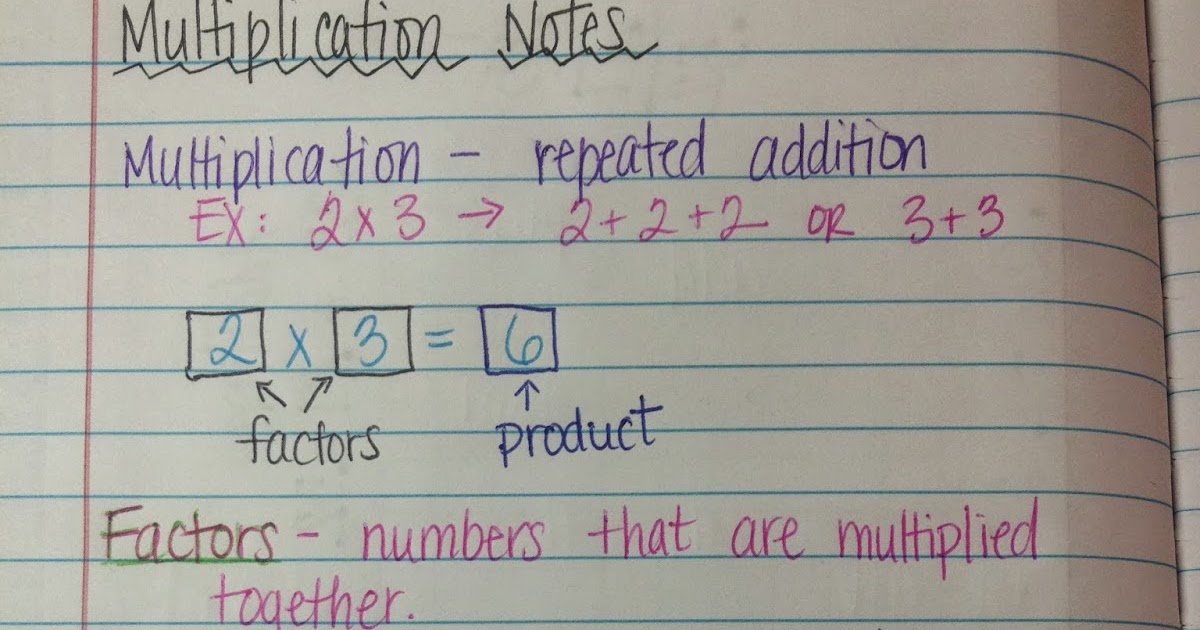 Multiplication Notes
Multiplication - repeated addition
EX: 2 x 3 → 2 + 2 + 2 OR 3 + 3
2 x 3 = 6
↖ ↗ ↑
factors product
Factors - numbers that are multiplied
together.